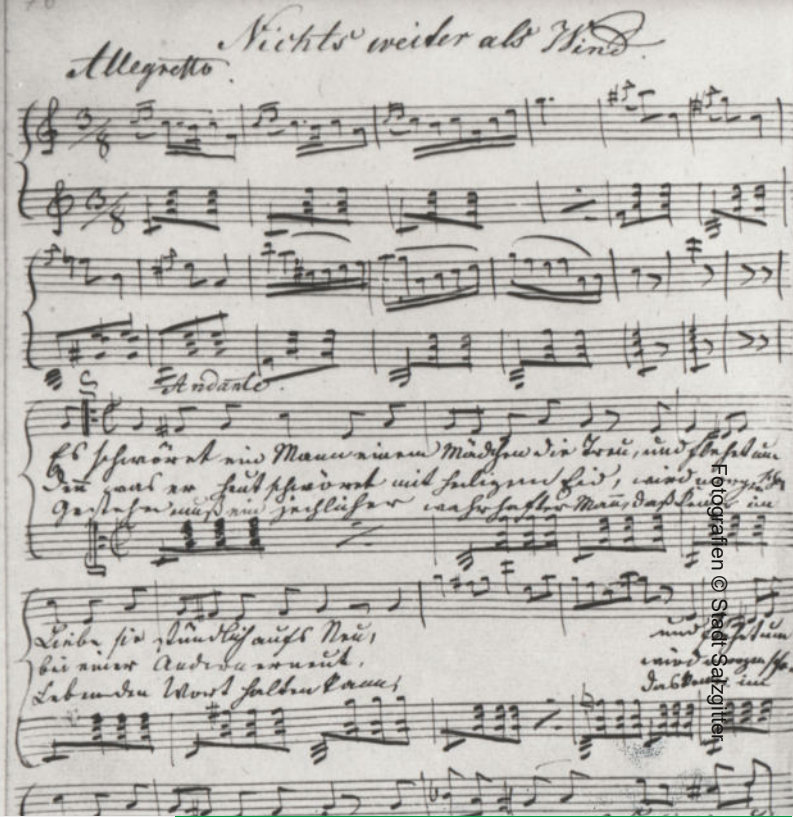 Nichts weiter als Wind.
Allegretto.
Andante.
Es schwöret ein Mann einem Mädchen die Treu, und flehet um
Den was er heut schwöret mit heiligem Eid, wird
Gestehn muß ein jechlicher wahrhafter Mañ, daß im
Liebe sie stündlich aufs Neu, und flehet um
bei einer Andern erneut. wird morgen
Leben den Wort halten kann, das im
Fotografien © Stadt Salzgitter